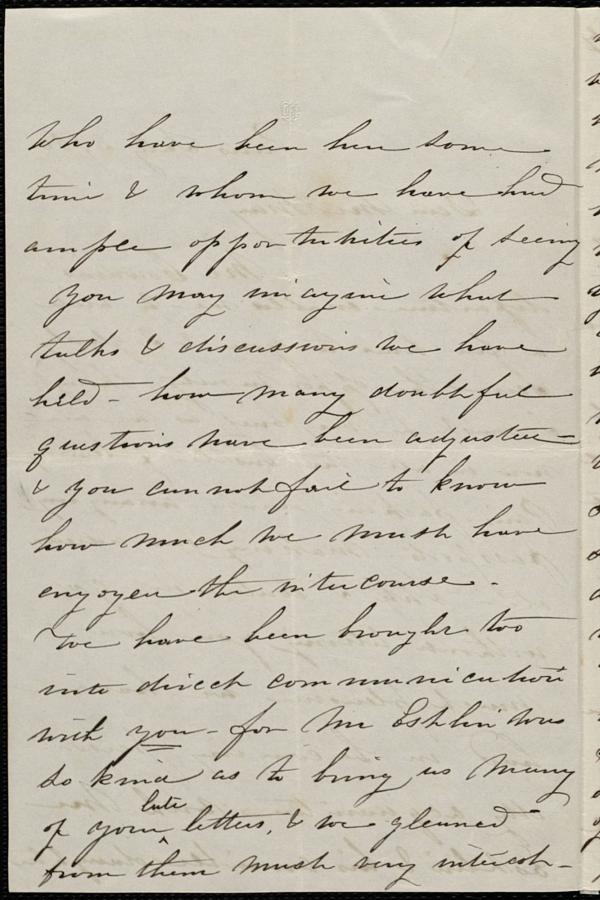 who have been here some
time & whom we have had
ample opportunities of seeing
You may imagine what
talks & discussions we have
held - how many doubtful
questions have been adjusted -
& you cannot fail to know
how much we must have
enjoyed the intercourse -
We have been brought too
into direct communication
with you - for Mr Estlin was
so kind as to bring us many
of your late letters, & we gleaned
from them much very interest-